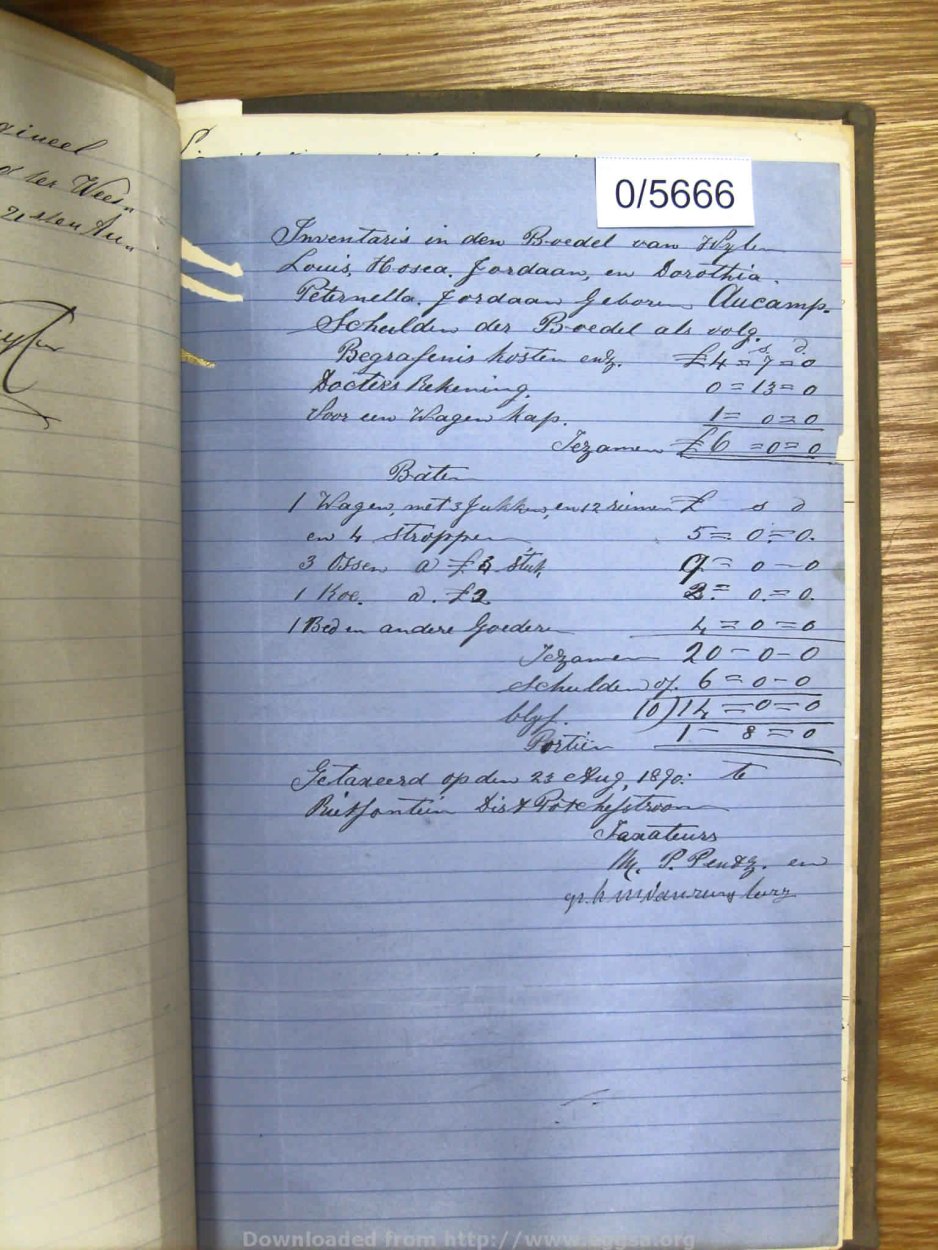 gineel
0/5666
Inventaris in den Boedel van Wylen
Louis, Hosea. Jordaan, en Dorothia.
Peternella. Jordaan Geboren Aucamp.
Schulden der Boedel als volg.
s. d.
Begrafenis kosten enz. £4=7=0
Docters Rekening. 0=13=0
Voor een Wagen kap. 1=0=0
Tezamen £6=0=0
Baten
1 Wagen, met 3 Jukken, en 12 riemen £ s d
en 4 stroppen 5=0=0.
3 Ossen a £3 stuk 9=0-0
1 Koe. a. £2 2=0.=0.
1 Bed en andere Goederen 4=0=0
Tezamen 20-0-0
Schulden of. 6=0-0
blyf. 10)14=0=0
Portien 1-8=0
Getaxeerd op den 23 Aug, 1890: te
Rietfontein Dist Potchefstroom
Taxateurs
M. P. en
Downloaded from http://www.eggsa.org